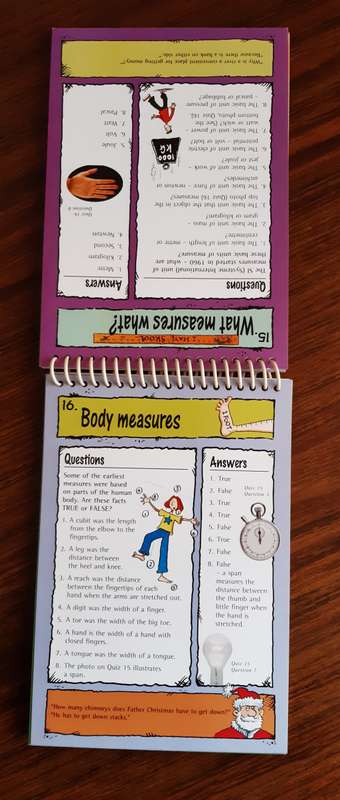 15. What measures what?
Questions
The SI (Système International) of
measures started in 1960 – what are
these basic units of measure?
1. The basic unit of length – meter or
centimeter?
2. The basic unit of mass –
gram or kilogram?
3. The basic unit that the object in the
top photo (Quiz 16) measures?
4. The basic unit of force – newton or
archimedes?
5. The basic unit of work –
jest or joule?
6. The basic unit of electric
potential – volt or bolt?
7. The basic unit of power –
watt or wich? (See the
bottom photo, Quiz 16)
8. The basic unit of pressure
pascal or babbage?
1000
KG
Answers
1. Meter
2. Kilogram
3. Second
4. Newton
5. Joule
6. Volt
7. Watt
8. Pascal
Quiz 16
Question 8
"Why is a river a convenient place for getting money?"
"Because there is a bank on either side."
16. Body measures
1 FOOT
Questions
Some of the earliest
measures were based
on parts of the human
body. Are these facts
TRUE or FALSE?
1. A cubit was the length
from the elbow to the
fingertips.
2. A leg was the
distance between
the heel and knee.
3. A reach was the distance
between the fingertips of each
hand when the arms are stretched out.
4. A digit was the width of a finger.
5. A tor was the width of the big toe.
6. A hand is the width of a hand with
closed fingers.
7. A tongue was the width of a tongue.
8. The photo on Quiz 15 illustrates
a span.
Answers
1. True
2. False
3. True
4. True
5. False
6. True
7. False
8. False
– a span
measures the
distance between
the thumb and
little finger when
the hand is
stretched.
Quiz 15
Question 3
Quiz 15
Question 7
"How many chimneys does Father Christmas have to get down?"
"He has to get down stacks."